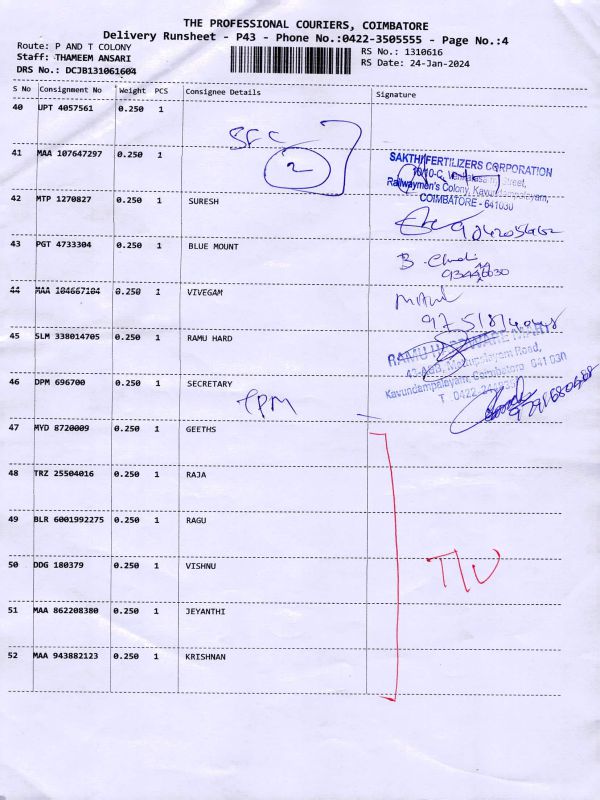 THE PROFESSIONAL COURIERS, COIMBATORE
Delivery Runsheet - P43 - Phone No.:0422-3505555 - Page No.:4
Route: P AND T COLONY
RS No.: 1310616
Staff: THAMEEM ANSARI
RS Date: 24-Jan-2024
DRS No.: DCJB131061604
S No Consignment No Weight PCS Consignee Details Signature
40 UPT 4057561 0.250 1
SFC
2
41 MAA 107647297 0.250 1
SAKTHI FERTILIZERS CORPORATION
Street,
Railwaymen's Colony, Kavundampalayam,
COIMBATORE - 641030
42 MTP 1270827 0.250 1 SURESH
43 PGT 4733304 0.250 1 BLUE MOUNT
44 MAA 104667104 0.250 1 VIVEGAM
45 SLM 338014705 0.250 1 RAMU HARD
RAMU HARDWARE
Mettupalayam Road,
Kavundampalayam, Coimbatore 641 030
46 DPM 696700 0.250 1 SECRETARY
47 MYD 8720009 0.250 1 GEETHS
48 TRZ 25504016 0.250 1 RAJA
49 BLR 6001992275 0.250 1 RAGU
50 DDG 180379 0.250 1 VISHNU
51 MAA 862208380 0.250 1 JEYANTHI
52 MAA 943882123 0.250 1 KRISHNAN